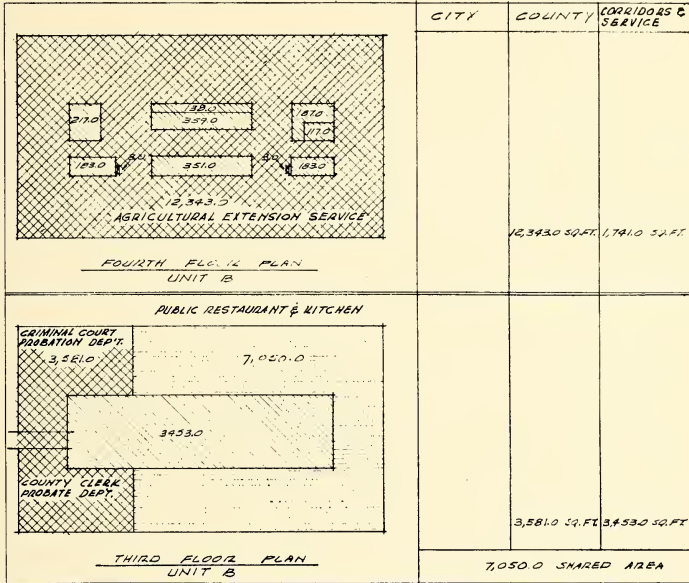 CITY COUNTY CORRIDORS & SERVICE
138.0
217.0 359.0 187.0
117.0
183.0 3.0 351.0 3.0 183.0
12,343.0
AGRICULTURAL EXTENSION SERVICE
12,343.0 SQ.FT. 1,741.0 SQ.FT.
FOURTH FLOOR PLAN
UNIT B
PUBLIC RESTAURANT & KITCHEN
CRIMINAL COURT
PROBATION DEP'T.
3,581.0 7,050.0
3453.0
COUNTY CLERK
PROBATE DEPT.
3,581.0 SQ.FT. 3,453.0 SQ.FT
THIRD FLOOR PLAN
UNIT B
7,050.0 SHARED AREA